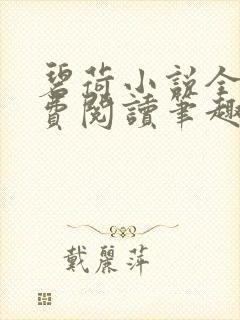 碧荷小说全
費閱讀筆趣
戴麗萍